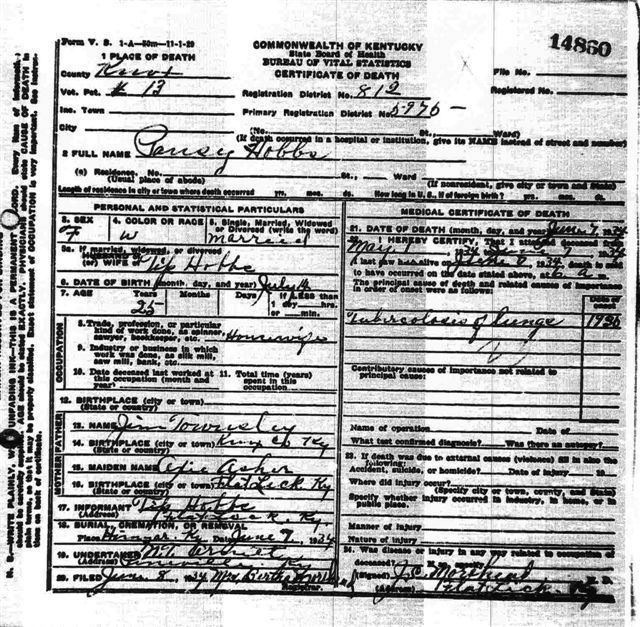 Form V. S. 1-A—50m—11-1-29
COMMONWEALTH OF KENTUCKY
State Board of Health
BUREAU OF VITAL STATISTICS
CERTIFICATE OF DEATH
14860
1 PLACE OF DEATH
County Knox
File No.
Vot. Pct. # 13
Registration District No. 812
Registered No.
Inc. Town
Primary Registration District No. 5976 —
City
(No. St., Ward)
(If death occurred in a hospital or institution, give its NAME instead of street and number)
2 FULL NAME Pansy Hobbs
(a) Residence. No. St., Ward
(Usual place of abode) (If nonresident, give city or town and State)
Length of residence in city or town where death occurred yrs. mos. ds. How long in U. S., if of foreign birth? yrs. mos. ds.
PERSONAL AND STATISTICAL PARTICULARS
3. SEX F
4. COLOR OR RACE W
5. Single, Married, Widowed or Divorced (write the word) Married
5a. If married, widowed, or divorced
HUSBAND of
(or) WIFE of Tip Hobbs
6. DATE OF BIRTH (month, day, and year) July 14
7. AGE Years 25 Months Days If LESS than 1 day, hrs. or min.
OCCUPATION
8. Trade, profession, or particular kind of work done, as spinner, sawyer, bookkeeper, etc. Housewife
9. Industry or business in which work was done, as silk mill, saw mill, bank, etc.
10. Date deceased last worked at this occupation (month and year)
11. Total time (years) spent in this occupation
12. BIRTHPLACE (city or town)
(State or country)
FATHER
13. NAME Jim Townsley
14. BIRTHPLACE (city or town) Knox Co Ky
(State or country)
MOTHER
15. MAIDEN NAME Asher
16. BIRTHPLACE (city or town) Flat Lick Ky
(State or country)
17. INFORMANT Tip Hobbs
(Address) Flat Lick Ky.
18. BURIAL, CREMATION, OR REMOVAL
Place Ky Date June 9, 1934
19. UNDERTAKER
(Address) Pineville Ky
20. FILED June 8, 1934 Mrs Bertha
Registrar.
MEDICAL CERTIFICATE OF DEATH
21. DATE OF DEATH (month, day, and year) June 7, 1934
22. I HEREBY CERTIFY, That I attended deceased from
I last saw her alive on 1934 death is said
to have occurred on the date stated above, at 6 a.m.
The principal cause of death and related causes of importance in order of onset were as follows:
Date of onset
Tuberculosis of lungs 1926
Contributory causes of importance not related to principal cause:
Name of operation Date of
What test confirmed diagnosis? Was there an autopsy?
23. If death was due to external causes (violence) fill in also the following:
Accident, suicide, or homicide? Date of injury 19
Where did injury occur?
(Specify city or town, county, and State)
Specify whether injury occurred in industry, in home, or in public place.
Manner of injury
Nature of injury
24. Was disease or injury in any way related to occupation of deceased?
(Signed) J. C. M. D.
(Address) Flat Lick Ky